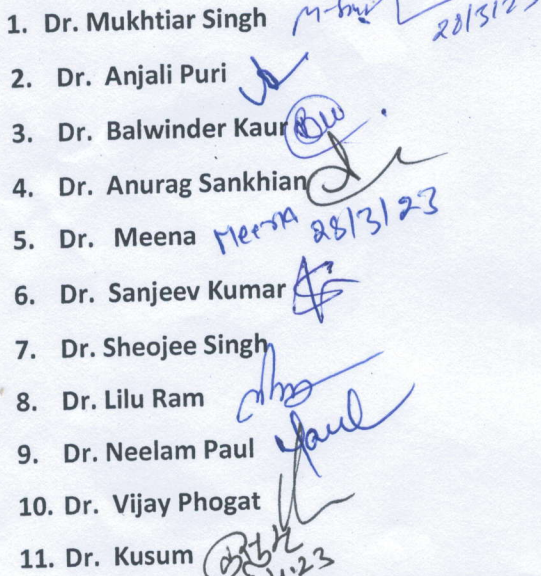 1. Dr. Mukhtiar Singh
28/3/23
2. Dr. Anjali Puri
3. Dr. Balwinder Kaur
4. Dr. Anurag Sankhian
5. Dr. Meena Meena 28/3/23
6. Dr. Sanjeev Kumar
7. Dr. Sheojee Singh
8. Dr. Lilu Ram
9. Dr. Neelam Paul Paul
10. Dr. Vijay Phogat
11. Dr. Kusum